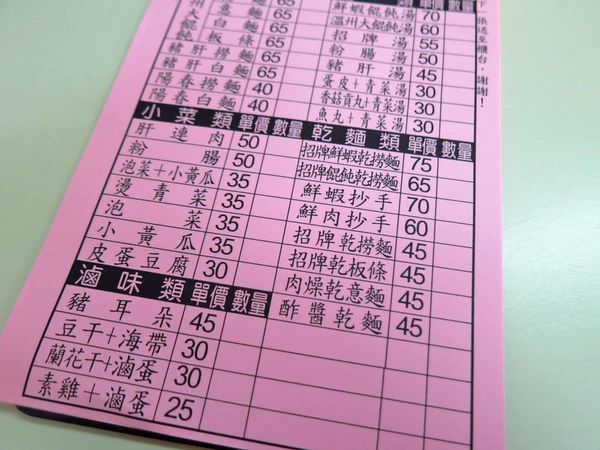 意麵 65
大白麵 65
餛飩板條 65
豬肝撈麵 65
豬肝白麵 65
陽春撈麵 40
陽春白麵 40
小菜類 單價 數量
肝連肉 50
粉腸 50
泡菜+小黃瓜 35
燙青菜 35
泡菜 35
小黃瓜 35
皮蛋豆腐 30
滷味類 單價 數量
豬耳朵 45
豆干+海帶 30
蘭花干+滷蛋 30
素雞+滷蛋 25
類 單價 數量
鮮蝦餛飩湯 70
溫州大餛飩湯 60
招牌湯 55
粉腸湯 50
豬肝湯 45
蛋皮+青菜湯 30
香菇貢丸+青菜湯 30
魚丸+青菜湯 30
乾麵類 單價 數量
招牌鮮蝦乾撈麵 75
招牌餛飩乾撈麵 65
鮮蝦抄手 70
鮮肉抄手 60
招牌乾撈麵 45
招牌乾板條 45
肉燥乾意麵 45
酢醬乾麵 45
張送至櫃台,謝謝!